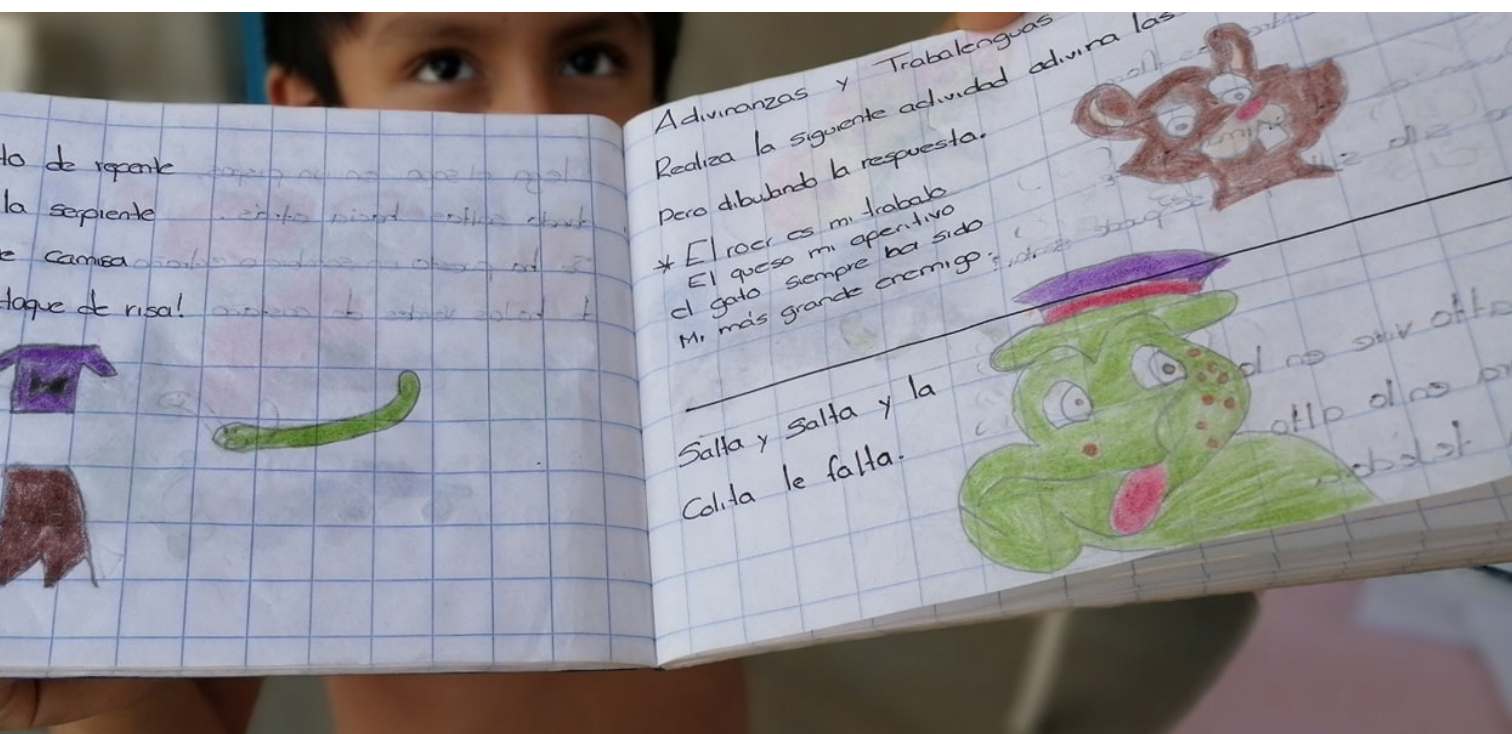 to de repente
la serpiente
e camisa
taque de risa!
Adivinanzas y Trabalenguas
Realiza la siguiente actividad adivina las
Pero dibujando la respuesta.
* El roer es mi trabajo
El queso mi aperitivo
el gato siempre ha sido
Mi más grande enemigo.
Salta y salta y la
Colita le falta.